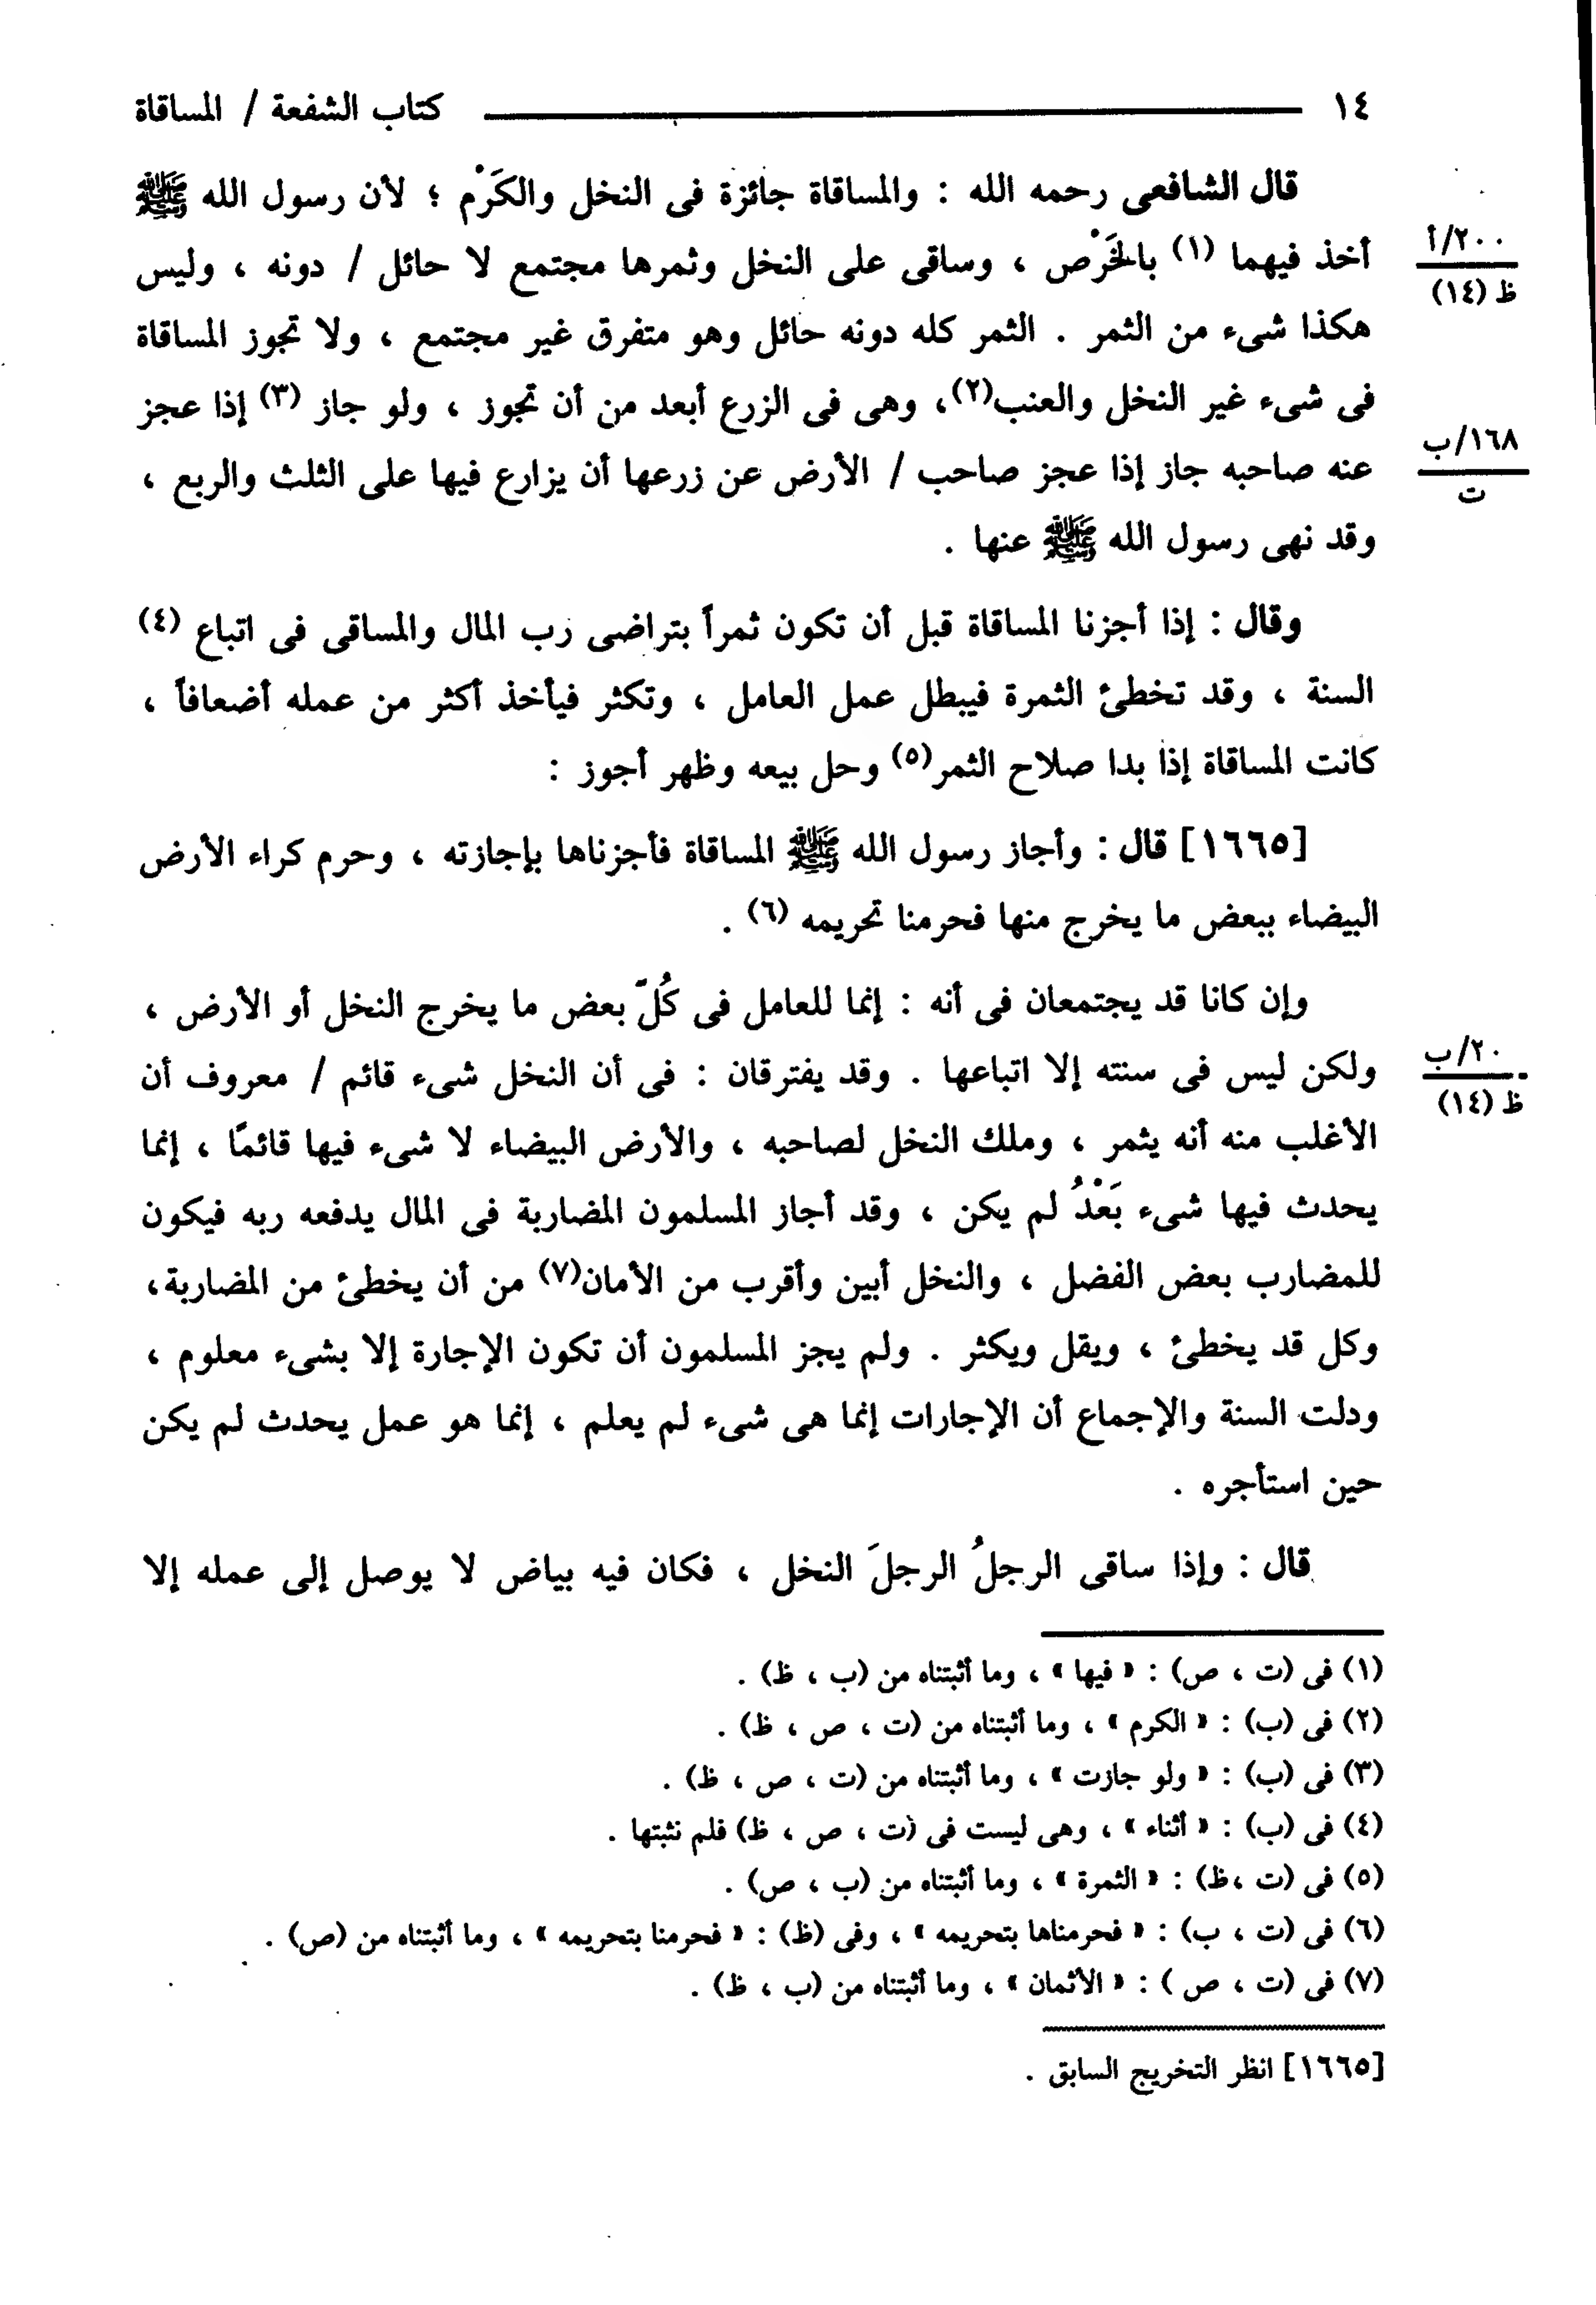 ١٤ كتاب الشفعة / المساقاة
قال الشافعى رحمه الله : والمساقاة جائزة فى النخل والكَرْم ؛ لأن رسول الله ﷺ
أخذ فيهما (١) بالخَرْص ، وساقى على النخل وثمرها مجتمع لا حائل / دونه ، وليس
٢٠٠/أ
ظ (١٤)
هكذا شىء من الثمر . الثمر كله دونه حائل وهو متفرق غير مجتمع ، ولا تجوز المساقاة
فى شىء غير النخل والعنب(٢)، وهى فى الزرع أبعد من أن تجوز ، ولو جاز (٣) إذا عجز
عنه صاحبه جاز إذا عجز صاحب / الأرض عن زرعها أن يزارع فيها على الثلث والربع ،
١٦٨/ب
ت
وقد نهى رسول الله ﷺ عنها .
وقال : إذا أجزنا المساقاة قبل أن تكون ثمراً بتراضى رب المال والمساقى فى اتباع (٤)
السنة ، وقد تخطئ الثمرة فيبطل عمل العامل ، وتكثر فيأخذ أكثر من عمله أضعافاً ،
كانت المساقاة إذا بدا صلاح الثمر(٥) وحل بيعه وظهر أجوز :
[١٦٦٥] قال : وأجاز رسول الله ﷺ المساقاة فأجزناها بإجازته ، وحرم كراء الأرض
البيضاء ببعض ما يخرج منها فحرمنا تحريمه (٦) .
وإن كانا قد يجتمعان فى أنه : إنما للعامل فى كُلّ بعض ما يخرج النخل أو الأرض ،
ولكن ليس فى سنته إلا اتباعها . وقد يفترقان : فى أن النخل شىء قائم / معروف أن
٢٠/ب
ظ (١٤)
الأغلب منه أنه يثمر ، وملك النخل لصاحبه ، والأرض البيضاء لا شىء فيها قائمًا ، إنما
يحدث فيها شىء بَعْدُ لم يكن ، وقد أجاز المسلمون المضاربة فى المال يدفعه ربه فيكون
للمضارب بعض الفضل ، والنخل أبين وأقرب من الأمان(٧) من أن يخطئ من المضاربة،
وكل قد يخطئ ، ويقل ويكثر . ولم يجز المسلمون أن تكون الإجارة إلا بشىء معلوم ،
ودلت السنة والإجماع أن الإجارات إنما هى شىء لم يعلم ، إنما هو عمل يحدث لم يكن
حين استأجره .
قال : وإذا ساقى الرجلُ الرجلَ النخل ، فكان فيه بياض لا يوصل إلى عمله إلا
(١) فى (ت ، ص) : « فيها » ، وما أثبتناه من (ب ، ظ) .
(٢) فى (ب) : « الكرم » ، وما أثبتناه من (ت ، ص ، ظ) .
(٣) فى (ب) : « ولو جازت » ، وما أثبتناه من (ت ، ص ، ظ) .
(٤) فى (ب) : « أثناء » ، وهى ليست فى (ت ، ص ، ظ) فلم نثبتها .
(٥) فى (ت ،ظ) : « الثمرة » ، وما أثبتناه من (ب ، ص) .
(٦) فى (ت ، ب) : « فحرمناها بتحريمه » ، وفى (ظ) : « فحرمنا بتحريمه » ، وما أثبتناه من (ص) .
(٧) فى (ت ، ص ) : « الأثمان » ، وما أثبتناه من (ب ، ظ) .
[١٦٦٥] انظر التخريج السابق .